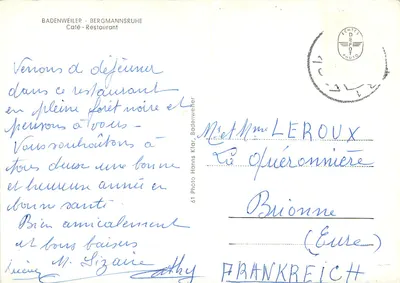 BADENWEILER - BERGMANNSRUHE
Café - Restaurant
Venons de déjeuner
dans ce restaurant
en pleine forêt noire et
pensons à vous -
Vous souhaitons à
tous deux une bonne
et heureuse année en
bonne santé.
Bien amicalement
et bons baisers
M. Lizaire
61 Photo Hanns Krier, Badenweiler
ECHTE
PHOTO
Mr et Mme LEROUX
La Quéronnière
Brionne
(Eure)
FRANKREICH